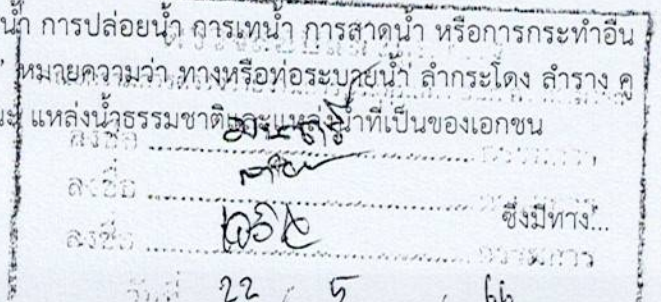 น้ำ การปล่อยน้ำ การเทน้ำ การสาดน้ำ หรือการกระทำอื่น
หมายความว่า ทางหรือท่อระบายน้ำ ลำกระโดง ลำราง คู
แหล่งน้ำธรรมชาติและแหล่งน้ำที่เป็นของเอกชน
ลงชื่อ ..... กรรมการ
ลงชื่อ .....
ซึ่งมีทาง...
ลงชื่อ ..... กรรมการ
วันที่ 22 / 5 / 66